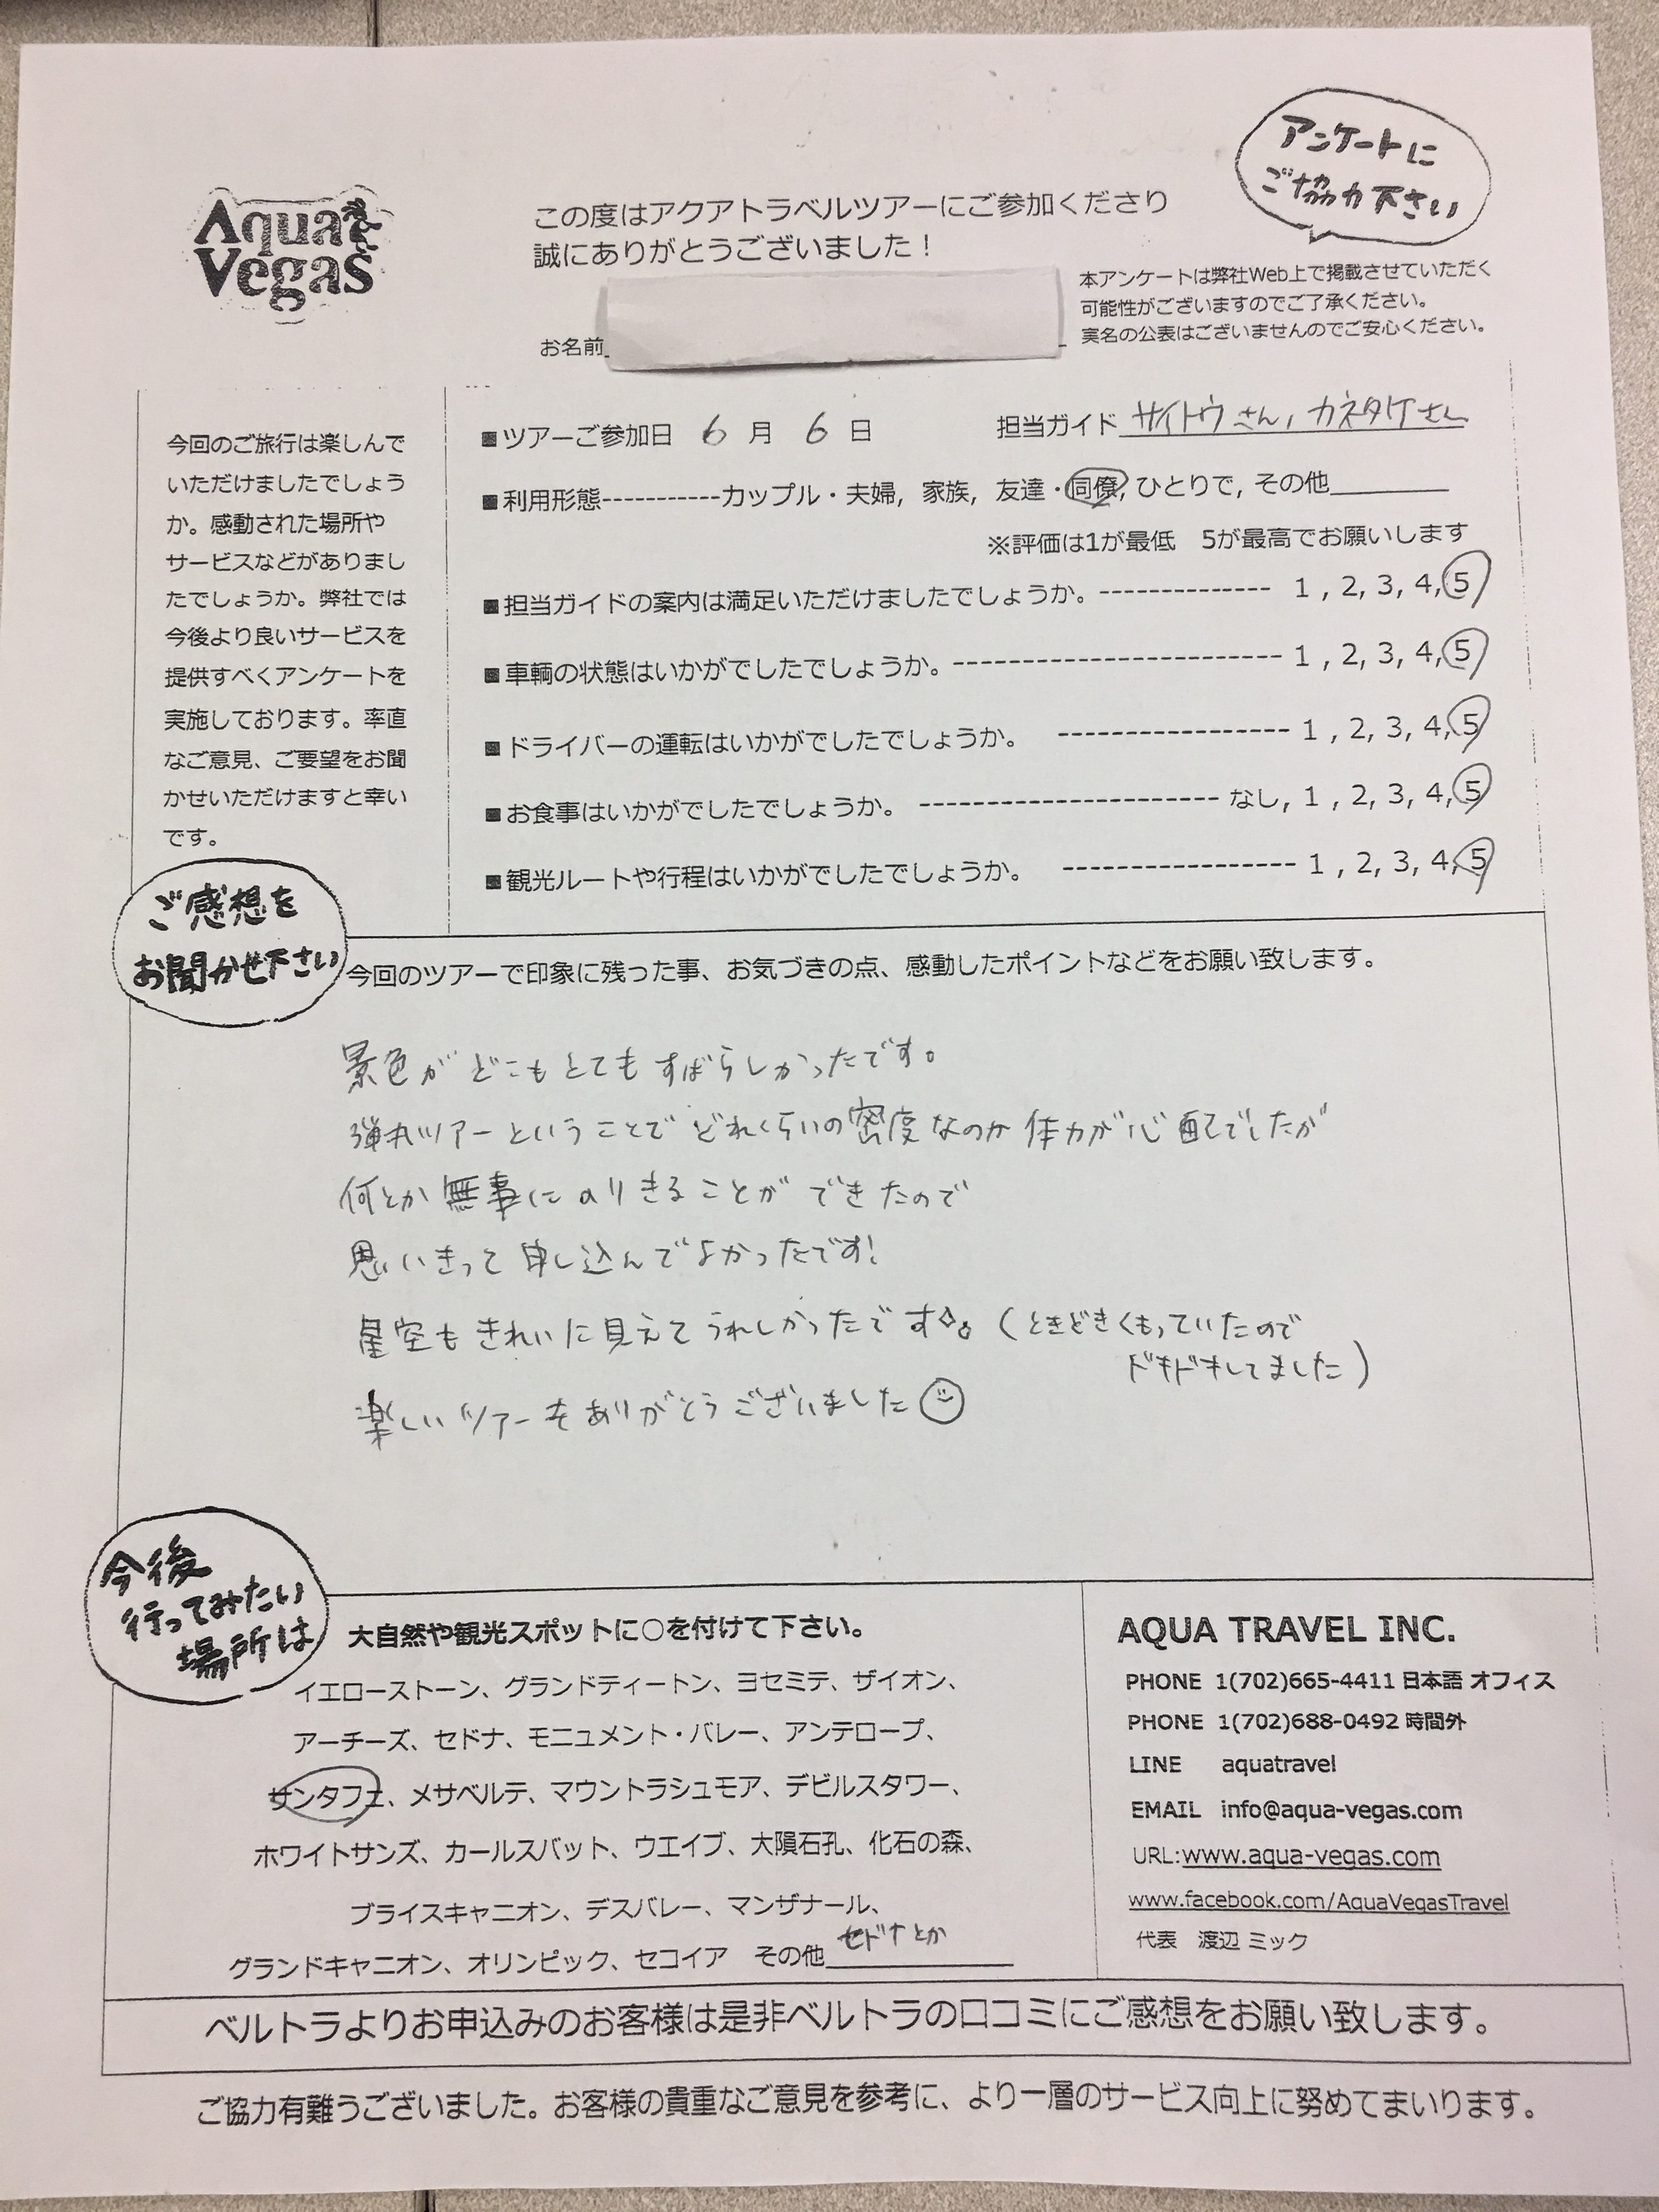 アンケートに
ご協力下さい
Aqua
Vegas
この度はアクアトラベルツアーにご参加くださり
誠にありがとうございました！
本アンケートは弊社Web上で掲載させていただく
可能性がございますのでご了承ください。
実名の公表はございませんのでご安心ください。
お名前
今回のご旅行は楽しんで
いただけましたでしょう
か。感動された場所や
サービスなどがありまし
たでしょうか。弊社では
今後より良いサービスを
提供すべくアンケートを
実施しております。率直
なご意見、ご要望をお聞
かせいただけますと幸い
です。
■ツアーご参加日 6 月 6 日 担当ガイド サイトウさん, カネタケさん
■利用形態-----------カップル・夫婦, 家族, 友達・同僚, ひとりで, その他
※評価は1が最低 5が最高でお願いします
■担当ガイドの案内は満足いただけましたでしょうか。------------- 1 , 2, 3, 4, 5
■車輌の状態はいかがでしたでしょうか。------------------------ 1 , 2, 3, 4, 5
■ドライバーの運転はいかがでしたでしょうか。 ----------------- 1 , 2, 3, 4, 5
■お食事はいかがでしたでしょうか。 ---------------------- なし, 1 , 2, 3, 4, 5
■観光ルートや行程はいかがでしたでしょうか。 ----------------- 1 , 2, 3, 4, 5
ご感想を
お聞かせ下さい
今回のツアーで印象に残った事、お気づきの点、感動したポイントなどをお願い致します。
景色がどこもとてもすばらしかったです。
弾丸ツアーということでどれくらいの密度なのか体力が心配でしたが
何とか無事にのりきることができたので
思いきって申し込んでよかったです!
星空もきれいに見えてうれしかったです。(ときどきくもっていたので
ドキドキしてました)
楽しいツアーをありがとうございました
今後
行ってみたい
場所は
大自然や観光スポットに○を付けて下さい。
イエローストーン、グランドティートン、ヨセミテ、ザイオン、
アーチーズ、セドナ、モニュメント・バレー、アンテロープ、
サンタフェ、メサベルテ、マウントラシュモア、デビルスタワー、
ホワイトサンズ、カールスバット、ウエイブ、大隕石孔、化石の森、
ブライスキャニオン、デスバレー、マンザナール、
グランドキャニオン、オリンピック、セコイア その他 セドナとか
AQUA TRAVEL INC.
PHONE 1(702)665-4411 日本語 オフィス
PHONE 1(702)688-0492 時間外
LINE aquatravel
EMAIL info@aqua-vegas.com
URL:www.aqua-vegas.com
www.facebook.com/AquaVegasTravel
代表 渡辺 ミック
ベルトラよりお申込みのお客様は是非ベルトラの口コミにご感想をお願い致します。
ご協力有難うございました。お客様の貴重なご意見を参考に、より一層のサービス向上に努めてまいります。